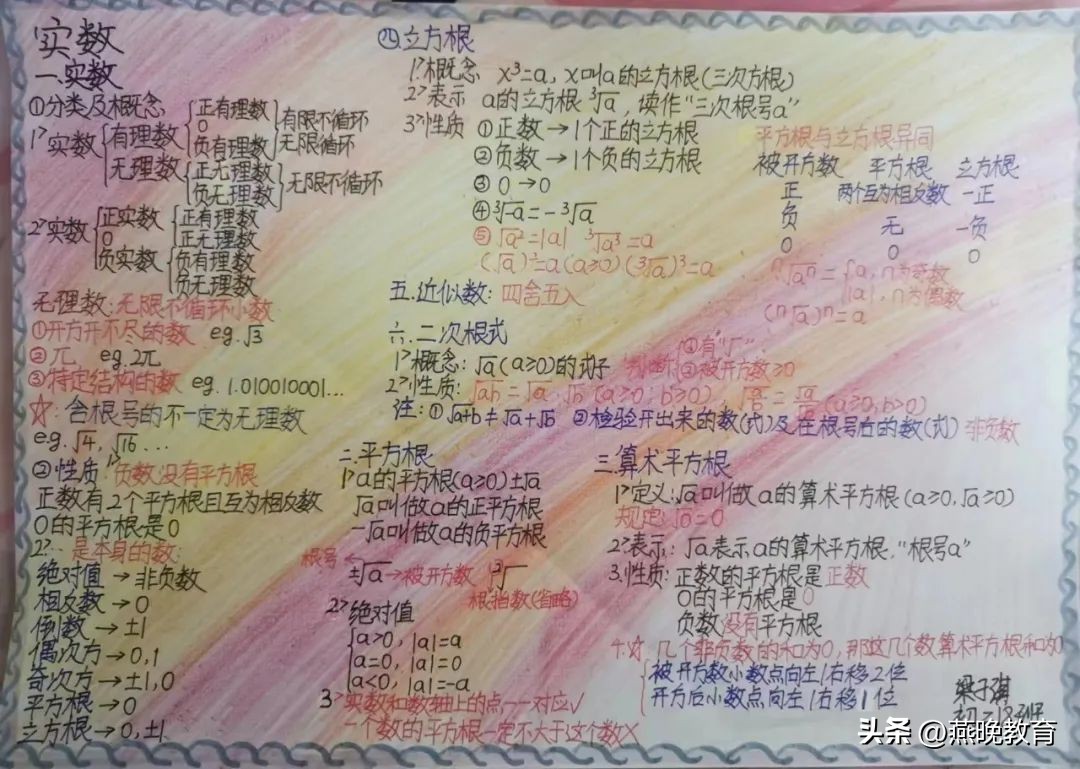 实数
一.实数
①分类及概念
1>实数{有理数{正有理数
0
负有理数}有限不循环
无限循环
无理数{正无理数
负无理数}无限不循环
2>实数{正实数{正有理数
正无理数
0
负实数{负有理数
负无理数
无理数:无限不循环小数
①开方开不尽的数 eg.√3
②π eg.2π
③特定结构的数 eg. 1.010010001...
☆:含根号的不一定为无理数
eg.√4,√16...
②性质 1>负数没有平方根
正数有2个平方根且互为相反数
0的平方根是0
2>…是本身的数:
绝对值→非负数
相反数→0
倒数→±1
偶次方→0,1
奇次方→±1,0
平方根→0
立方根→0,±1
二.平方根
1>a的平方根(a≥0)±√a
√a叫做a的正平方根
-√a叫做a的负平方根
根号←
±√a→被开方数
根指数(省略)
2>绝对值
{a>0, |a|=a
a=0, |a|=0
a<0, |a|=-a
3>实数和数轴上的点一一对应√
一个数的平方根一定不大于这个数×
三.算术平方根
1>定义:√a叫做a的算术平方根(a≥0,√a≥0)
规定:√0=0
2>表示:√a表示a的算术平方根,"根号a"
3.性质:正数的平方根是正数
0的平方根是0
负数没有平方根
4.☆:几个非负数的和为0,那这几个数算术平方根和为0
{被开方数小数点向左/右移2位
开方后小数点向左/右移1位
四立方根
1>概念 x³=a, x叫a的立方根(三次方根)
2>表示 a的立方根³√a,读作"三次根号a"
3>性质 ①正数→1个正的立方根
②负数→1个负的立方根
③0→0
④³√-a=-³√a
⑤√a²=|a| ³√a³=a
(√a)²=a(a≥0)(³√a)³=a
平方根与立方根异同
被开方数 平方根 立方根
正 两个互为相反数 一正
负 无 一负
0 0 0
ⁿ√aⁿ={a,n为奇数
|a|,n为偶数
(ⁿ√a)ⁿ=a
五.近似数:四舍五入
六.二次根式
1>概念:√a(a≥0)的式子 判断①有"√"
②被开方数≥0
2>性质:√ab=√a·√b(a≥0;b≥0),√a/b=√a/√b(a≥0,b>0)
注:①√a+b≠√a+√b ②检验开出来的数(式)及在根号后的数(式)非负数
头条@燕晚教育